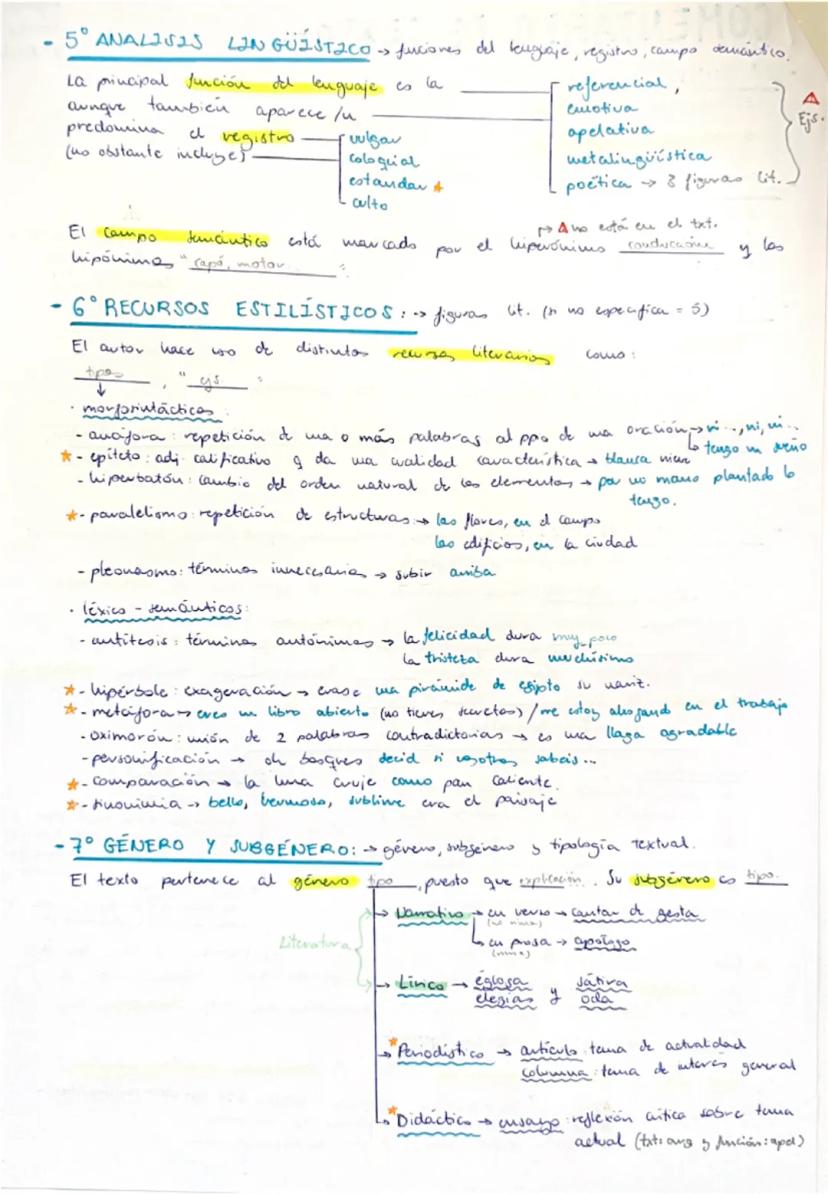 - 5º ANALISIS LINGÜÍSTICO → funciones del lenguaje, registro, campo semántico.
La principal función del lenguaje es la ______ referencial,
aunque también aparece/n ______ emotiva
predomina el registro — vulgar apelativa
(no obstante incluye) — coloquial metalingüística
estandar ★ poética → 3 figuras lit.
culto
Ejs.
↱ no está en el txt.
El campo semántico está marcado por el hiperónimo conducción y los
hipónimos "capó, motor ".
- 6º RECURSOS ESTILÍSTICOS: → figuras lit. (si no especifica = 5)
El autor hace uso de distintos recursos literarios como:
tipos, " ejs "
↓
· morfosintácticos:
- anáfora: repetición de una o más palabras al ppo de una oración → ni..., ni, ni...
↳ tengo un sueño
★ - epíteto: adj. calificativo q da una cualidad característica → blanca nieve
- hiperbatón: cambio del orden natural de los elementos → por no mano plantado lo
tengo.
★ - paralelismo: repetición de estructuras → las flores, en el campo
los edificios, en la ciudad
- pleonasmo: términos innecesarios → subir arriba
· léxico - semánticos:
- antítesis: términos antónimos → la felicidad dura muy poco
la tristeza dura muchísimo
★ - hipérbole: exageración → erase una pirámide de egipto su nariz.
★ - metáfora → eres un libro abierto (no tienes secretos) / me estoy ahogando en el trabajo
- oximorón: unión de 2 palabras contradictorias → es una llaga agradable
- personificación → oh bosques decid si vosotros sabeis...
★ - comparación → la luna cruje como pan caliente.
★ - sinonimia → bello, hermoso, sublime era el paisaje
- 7º GÉNERO Y SUBGÉNERO: → género, subgénero y tipología textual.
El texto pertenece al género tipo, puesto que explicación. Su subgénero es tipo.
Literatura
→ Narrativo → en verso → cantar de gesta
↳ en prosa → apólogo
→ Lírico → égloga y sátira
elegías oda
★ Periodístico → artículo: tema de actualidad
columna: tema de interés general
★ Didáctico → ensayo: reflexión crítica sobre tema
actual (txt: arg y función: apel)